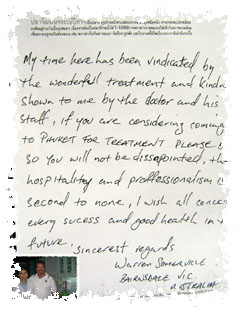 My time here has been vindicated by
the wonderful treatment and kindn
shown to me by the doctor and his
staff, if you are considering coming
to PHUKET FOR TREATMENT PLEASE
SO YOU will not be dissapointed, th
hospitality and proffessionalism is
second to none, I wish all concer
every sucess and good health in
future.
sincerest regards
Warren SOMERVILLE
BAIRNSDALE VIC.